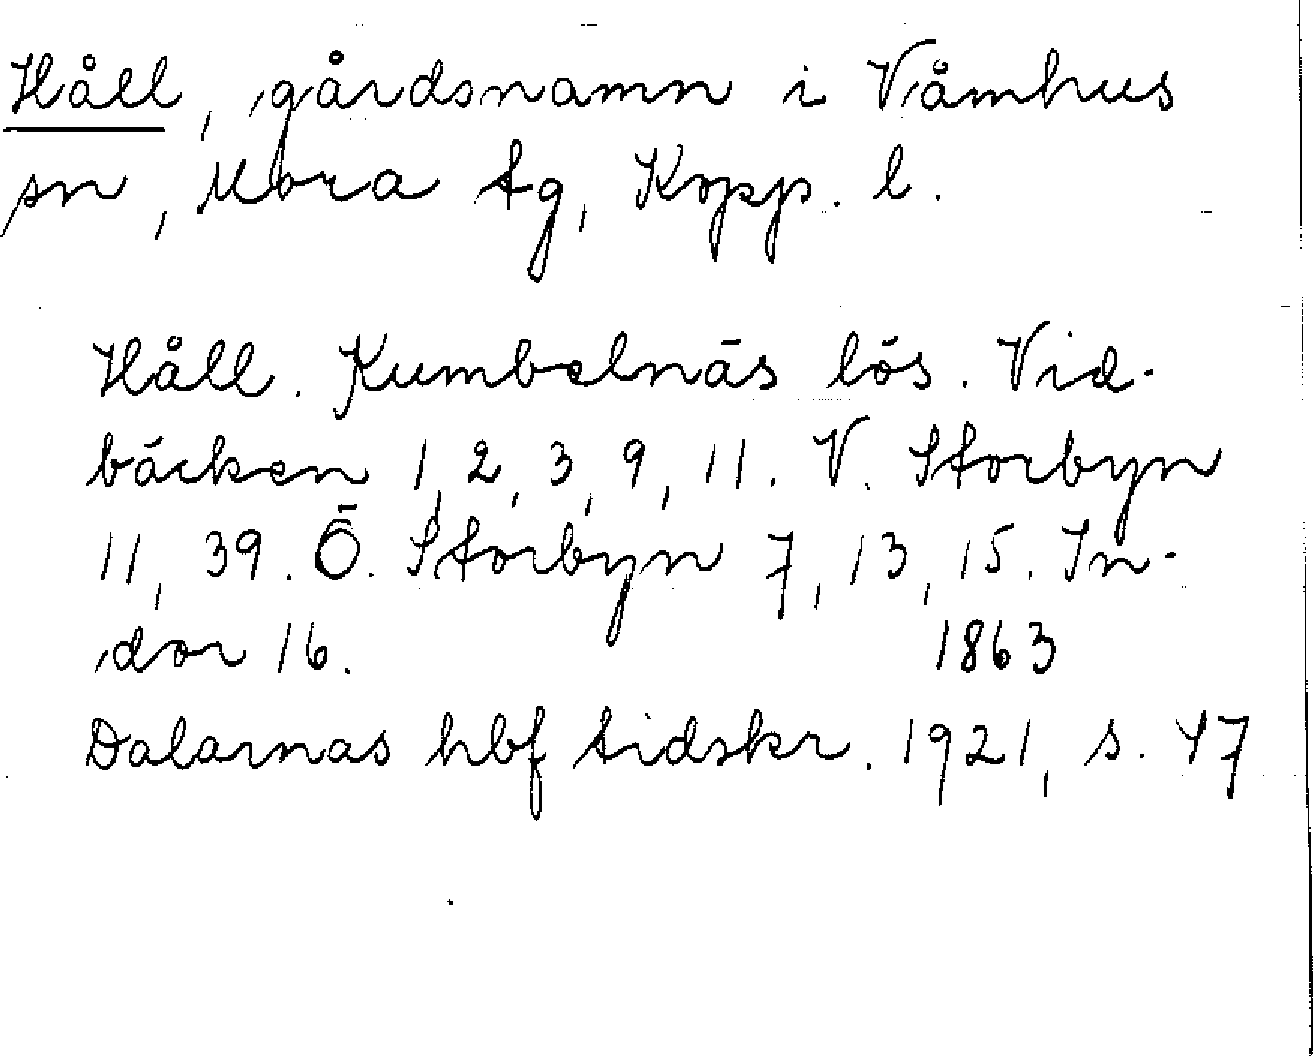 Håll, gårdsnamn i Våmhus
sn, Mora tg, Kopp. l.
Håll. Kumbelnäs lös. Vid-
bäcken 1, 2, 3, 9, 11. V. Storbyn
11, 39. Ö. Storbyn 7, 13, 15. In-
dor 16. 1863
Dalarnas hbf tidskr. 1921, s. 47